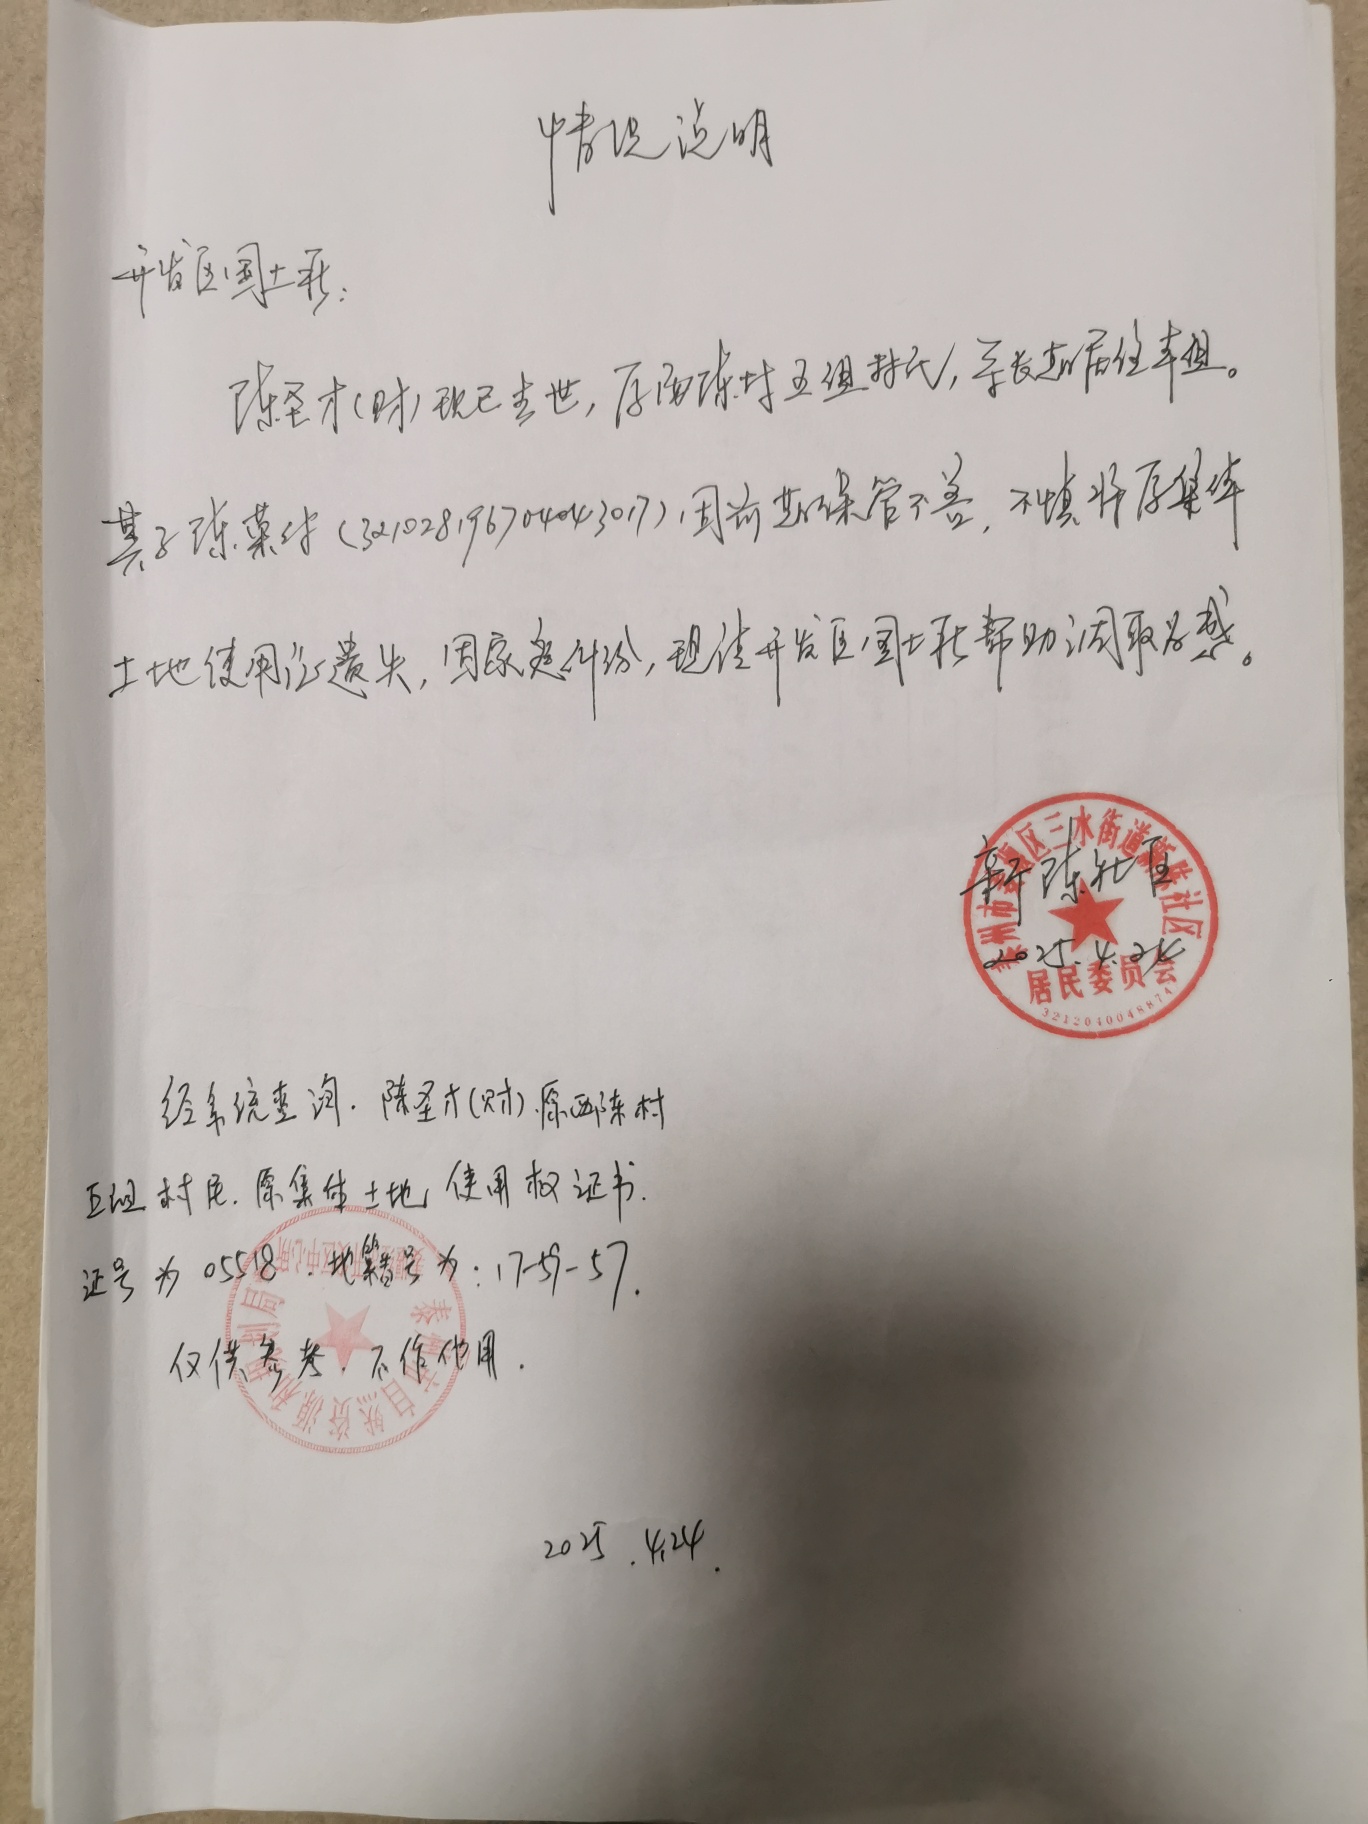 情况说明
开发区国土所:
陈圣才(财)现已去世,原西陈村五组村民,并长期居住本组。
其子陈(321028196704043017),因前期保管不善,不慎将原集体
土地使用证遗失,因家庭纠纷,现请开发区国土所帮助调取为感。
泰州市姜堰区三水街道新陈社区
新陈社区
2025.4.24
居民委员会
3212040048874
经系统查询.陈圣才(财).原西陈村
五组村民.原集体土地使用权证书.
证号为05518.地籍号为:17-59-57.
仅供参考.不作他用.
泰州市自然资源和规划局
2025.4.24.